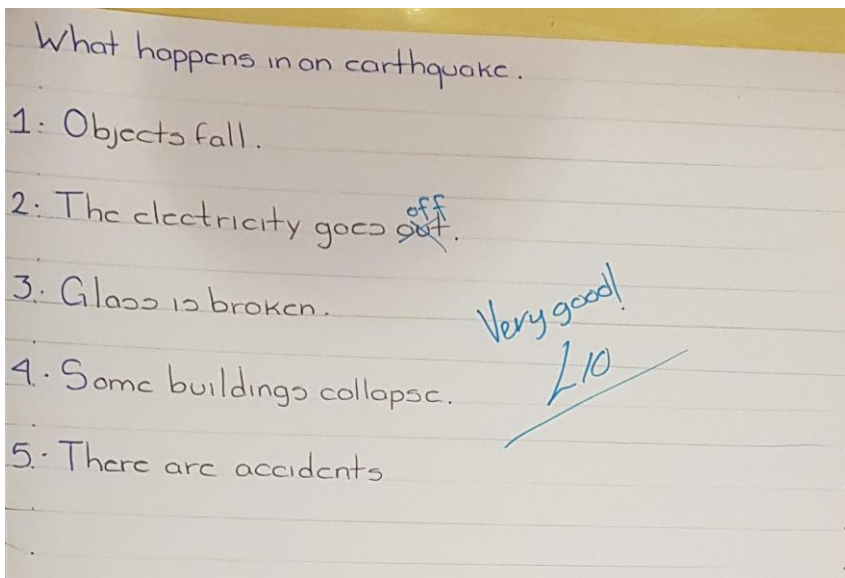 What happens in an earthquake.
1: Objects fall.
2: The electricity goes out off.
3. Glass is broken.
Very good!
4. Some buildings collapse.
10
5. There are accidents